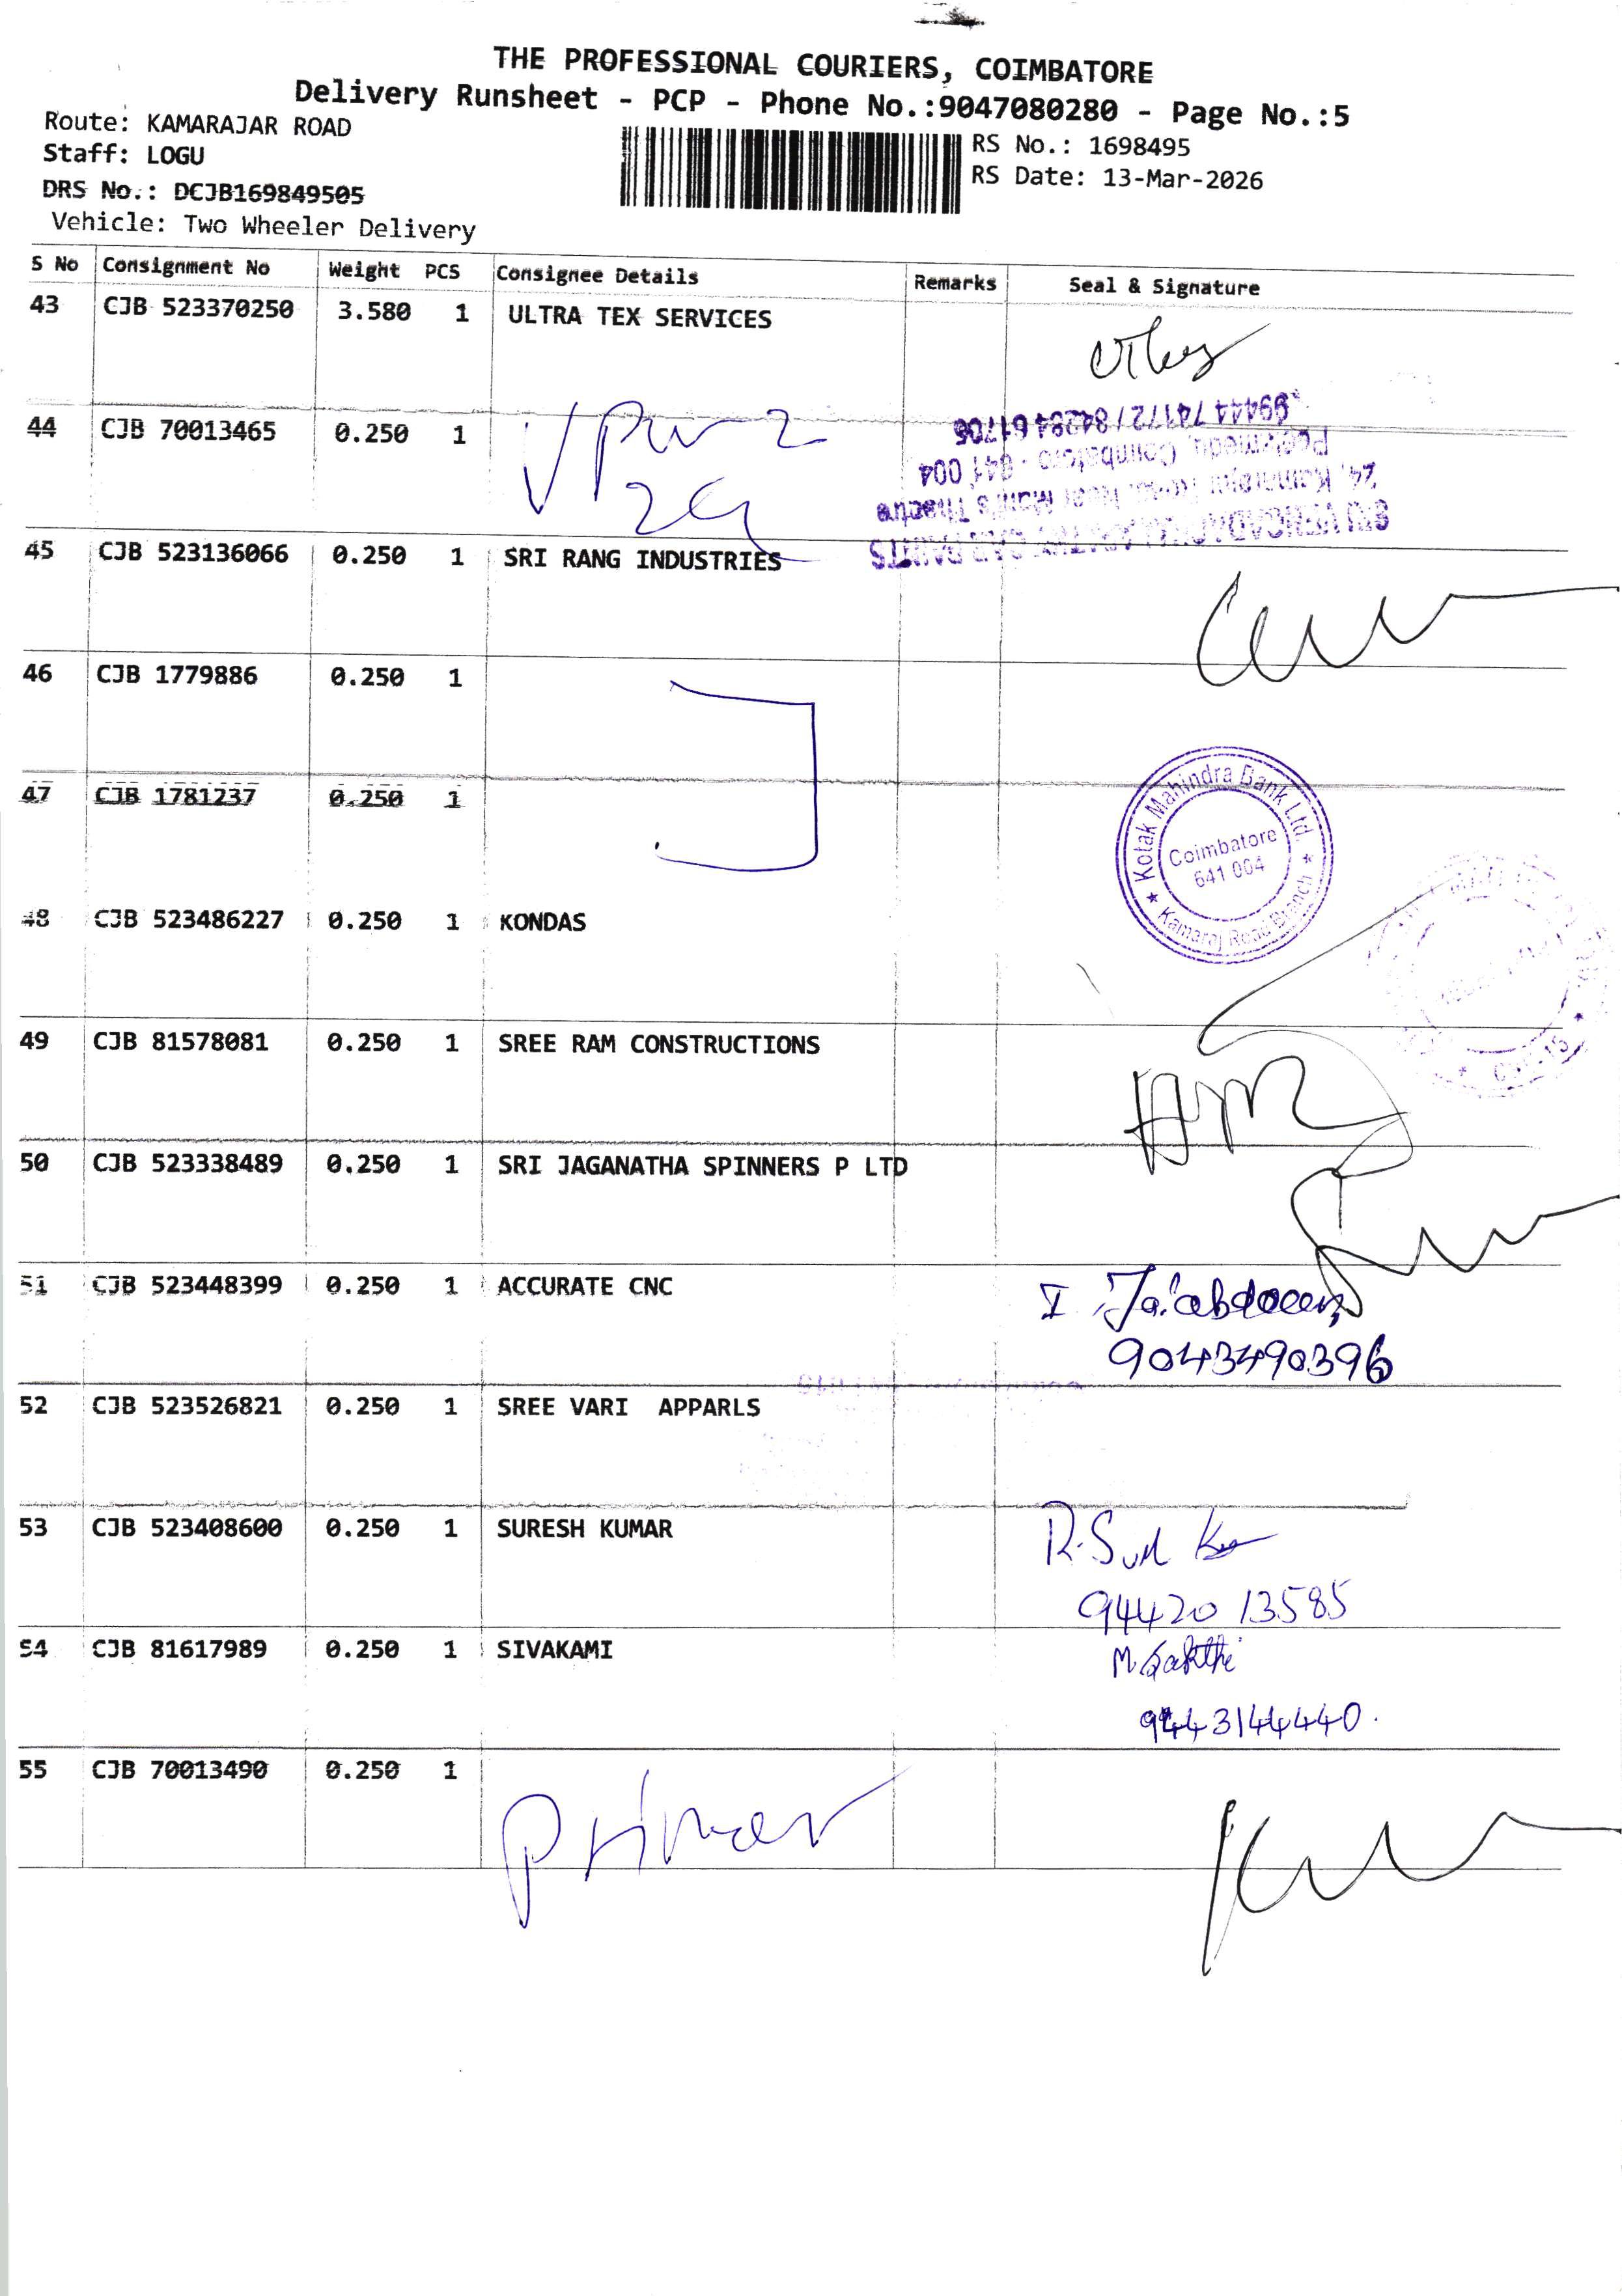 THE PROFESSIONAL COURIERS, COIMBATORE
Delivery Runsheet - PCP - Phone No.:9047080280 - Page No.:5
Route: KAMARAJAR ROAD
Staff: LOGU
DRS No.: DCJB169849505
Vehicle: Two Wheeler Delivery
RS No.: 1698495
RS Date: 13-Mar-2026
S No Consignment No Weight PCS Consignee Details Remarks Seal & Signature
43 CJB 523370250 3.580 1 ULTRA TEX SERVICES
44 CJB 70013465 0.250 1
99444 74172 / 84284 61706
Peelamedu, Coimbatore - 641 004
24, Kamarajar Road, Near Mani's Theatre
45 CJB 523136066 0.250 1 SRI RANG INDUSTRIES
46 CJB 1779886 0.250 1
47 CJB 1781237 0.250 1
Kotak Mahindra Bank Ltd.
Coimbatore
641 004
Kamaraj Road Branch
48 CJB 523486227 0.250 1 KONDAS
49 CJB 81578081 0.250 1 SREE RAM CONSTRUCTIONS
50 CJB 523338489 0.250 1 SRI JAGANATHA SPINNERS P LTD
51 CJB 523448399 0.250 1 ACCURATE CNC
9043490396
52 CJB 523526821 0.250 1 SREE VARI APPARLS
53 CJB 523408600 0.250 1 SURESH KUMAR
94420 13585
54 CJB 81617989 0.250 1 SIVAKAMI
M. Sakthi
9443144440.
55 CJB 70013490 0.250 1